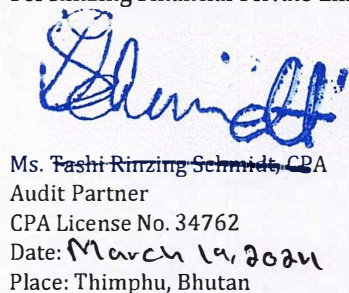 Schmidt
Ms. Tashi Rinzing Schmidt, CPA
Audit Partner
CPA License No. 34762
Date: March 19, 2024
Place: Thimphu, Bhutan